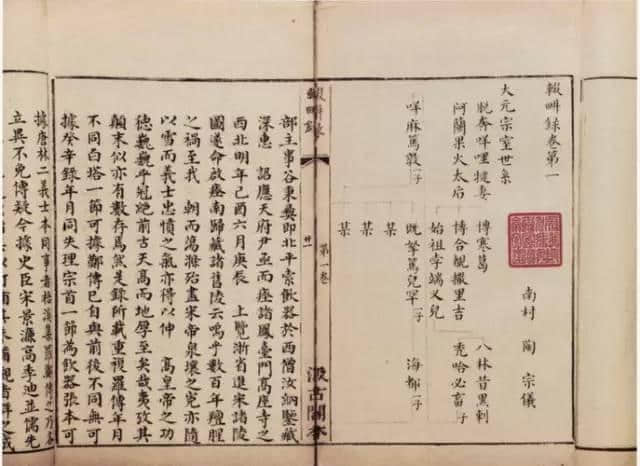 輟畊錄卷第一
南村 陶宗儀
大元宗室世系
脫奔咩哩犍妻
阿蘭果火太后
博寒葛
博合覩撒里吉
始祖孛端叉兒
八林昔黑剌
禿哈必畜子
咩麻篤敦子
既拏篤兒罕子
海都子
某
某
某
輟畊錄
第一卷
汲古閣
部主事谷秉彝即北平索飲器於西僧汝納鑒藏
深惠 詔應天府尹丞而座諸鳳臺門高座寺之
西北明年己酉六月庚辰 上覽浙省進宋諸陵
圖遂命啟瘞南歸藏諸舊陵云嗚乎數百年羶腥
之禍至我 朝而蕩滌殆盡宋帝泉壤之冤亦隨
以雪而義士忠憤之氣亦得以伸 高皇帝之功
德巍巍乎冠絕前古天高而地厚至矣哉夷攷其
顛末似亦有數存焉無是錄所載重複羅傳年月
不同白塔一節可據鄭傳已自與前後不同無可
據癸辛錄年月同失理宗首一節為飲器張本可
據唐林二義士本同事者
立異不免傳疑今據史臣宋景濂高季迪並儒先